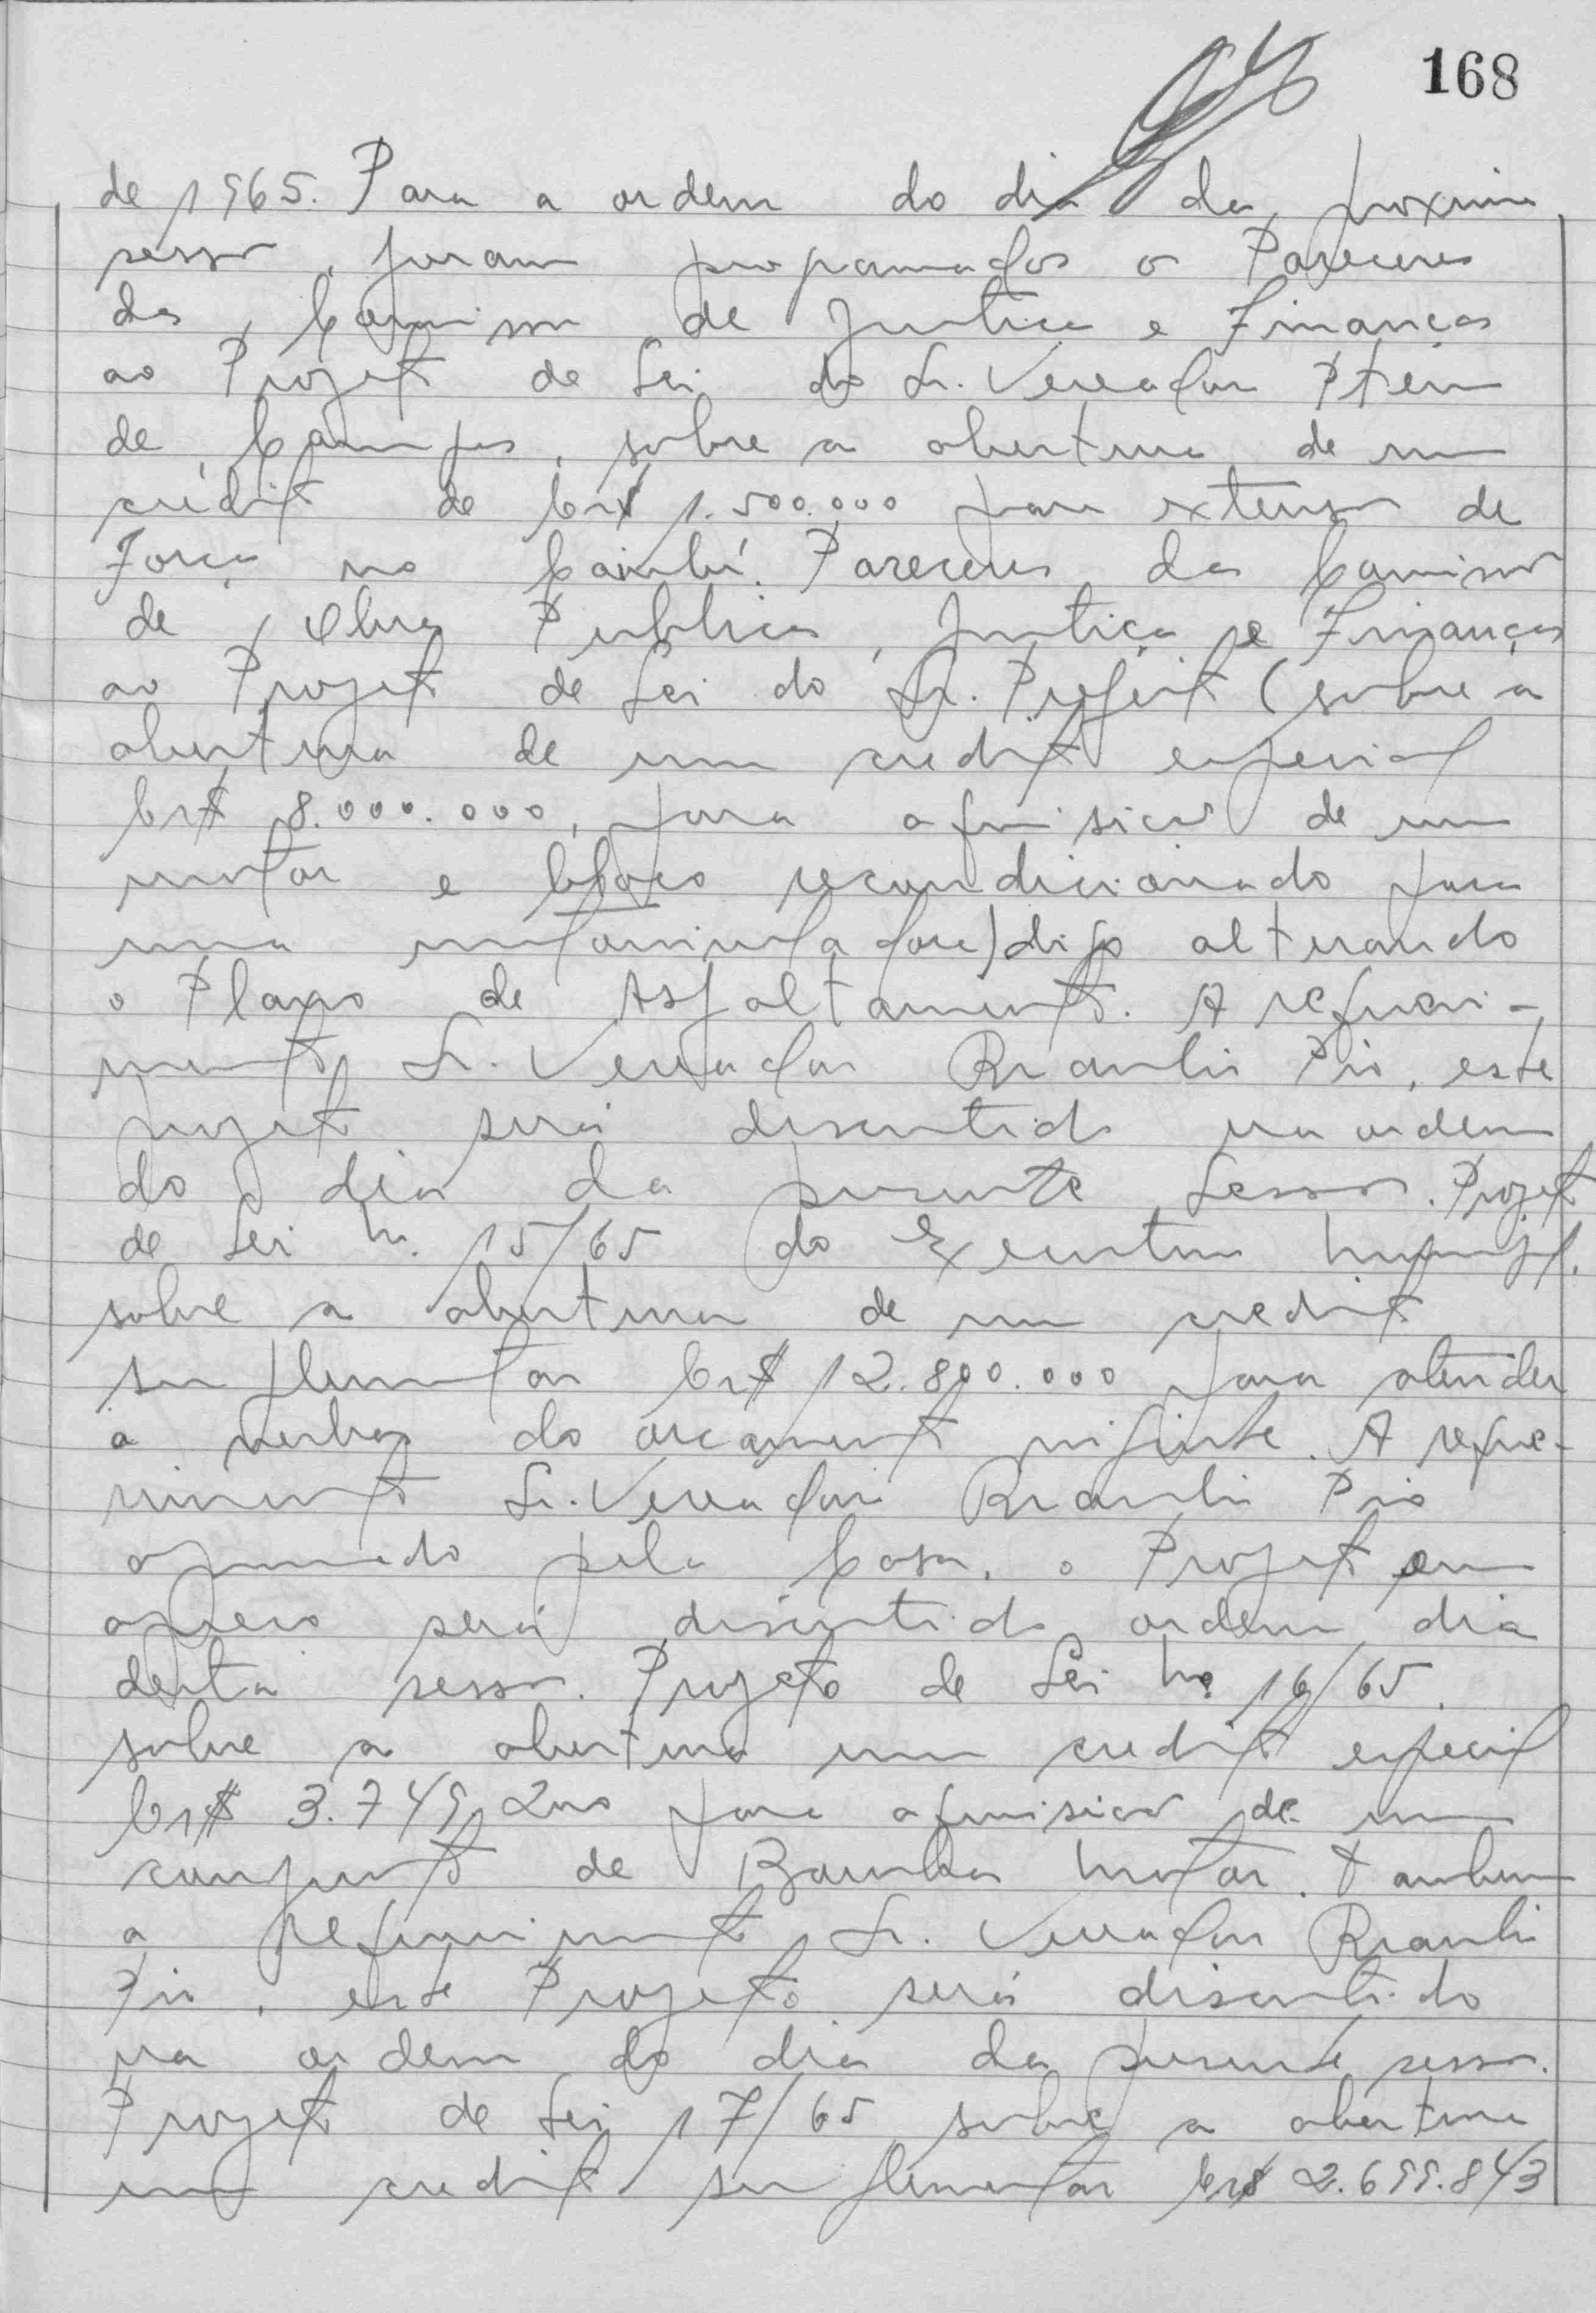 168
de 1965. Para a ordem do dia da proxima
sessão, foram programados o Pareceres
das Comissão de Justiça e Finanças
ao Projeto de Lei do Sr. Vereador
de Campos, sobre a abertura de um
crédito de Cr$ 1.500.000 para extensão de
Força no Cambuí. Pareceres das Comissão
de Obras Publicas, Justiça e Finanças
ao Projeto de Lei do Sr. Prefeito (sobre a
abertura de um credito especial
Cr$ 8.000.000, para aquisição de um
motor e bloco recondicionado para
uma motoniveladora) digo alterando
o Plano de Asfaltamento. A requeri-
mento Sr. Vereador Braulio Pio, este
projeto será discutido na ordem
do dia da presente Sessão. Projeto
de Lei n. 15/65 do Executivo Municipal,
sobre a abertura de um credito
suplementar Cr$ 12.800.000 para atender
a verbas do orçamento vigente. A reque-
rimento Sr. Vereador Braulio Pio
aprovado pela Casa, o Projeto em
apreço será discutido ordem dia
desta sessão. Projeto de Lei nº 16/65.
sobre a abertura um credito especial
Cr$ 3.749.200 para aquisição de um
conjunto de Bomba Motor. Tambem
a requerimento Sr. Vereador Braulio
Pio, este Projeto será discutido
na ordem do dia da presente sessão.
Projeto de Lei 17/65 sobre a abertura
um credito suplementar Cr$ 2.699.843